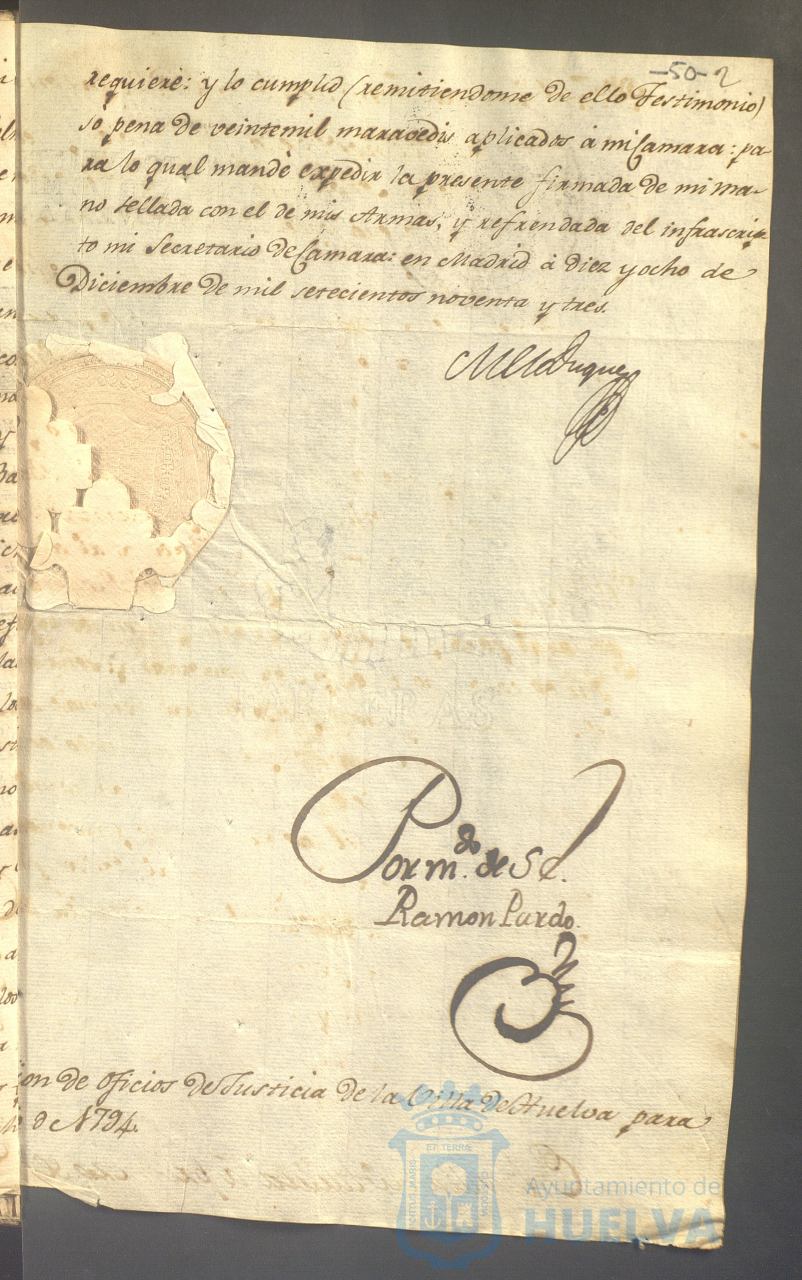 -50- 2
requiere: y lo cumplid (remitiendome de ello Testimonio)
so pena de veintemil maravedis aplicados á mi Camara: pa-
ra lo qual mandè expedir la presente firmada de mi ma-
no sellada con el de mis Armas, y refrendada del infrascrip-
to mi Secretario de Camara: en Madrid á diez y ocho de
Diciembre de mil setecientos noventa y tres.
Duque
Por m.do de S.E.
Ramon Pardo.
on de oficios de Justicia de la Villa de Huelva para
1794.
Ayuntamiento de
HUELVA